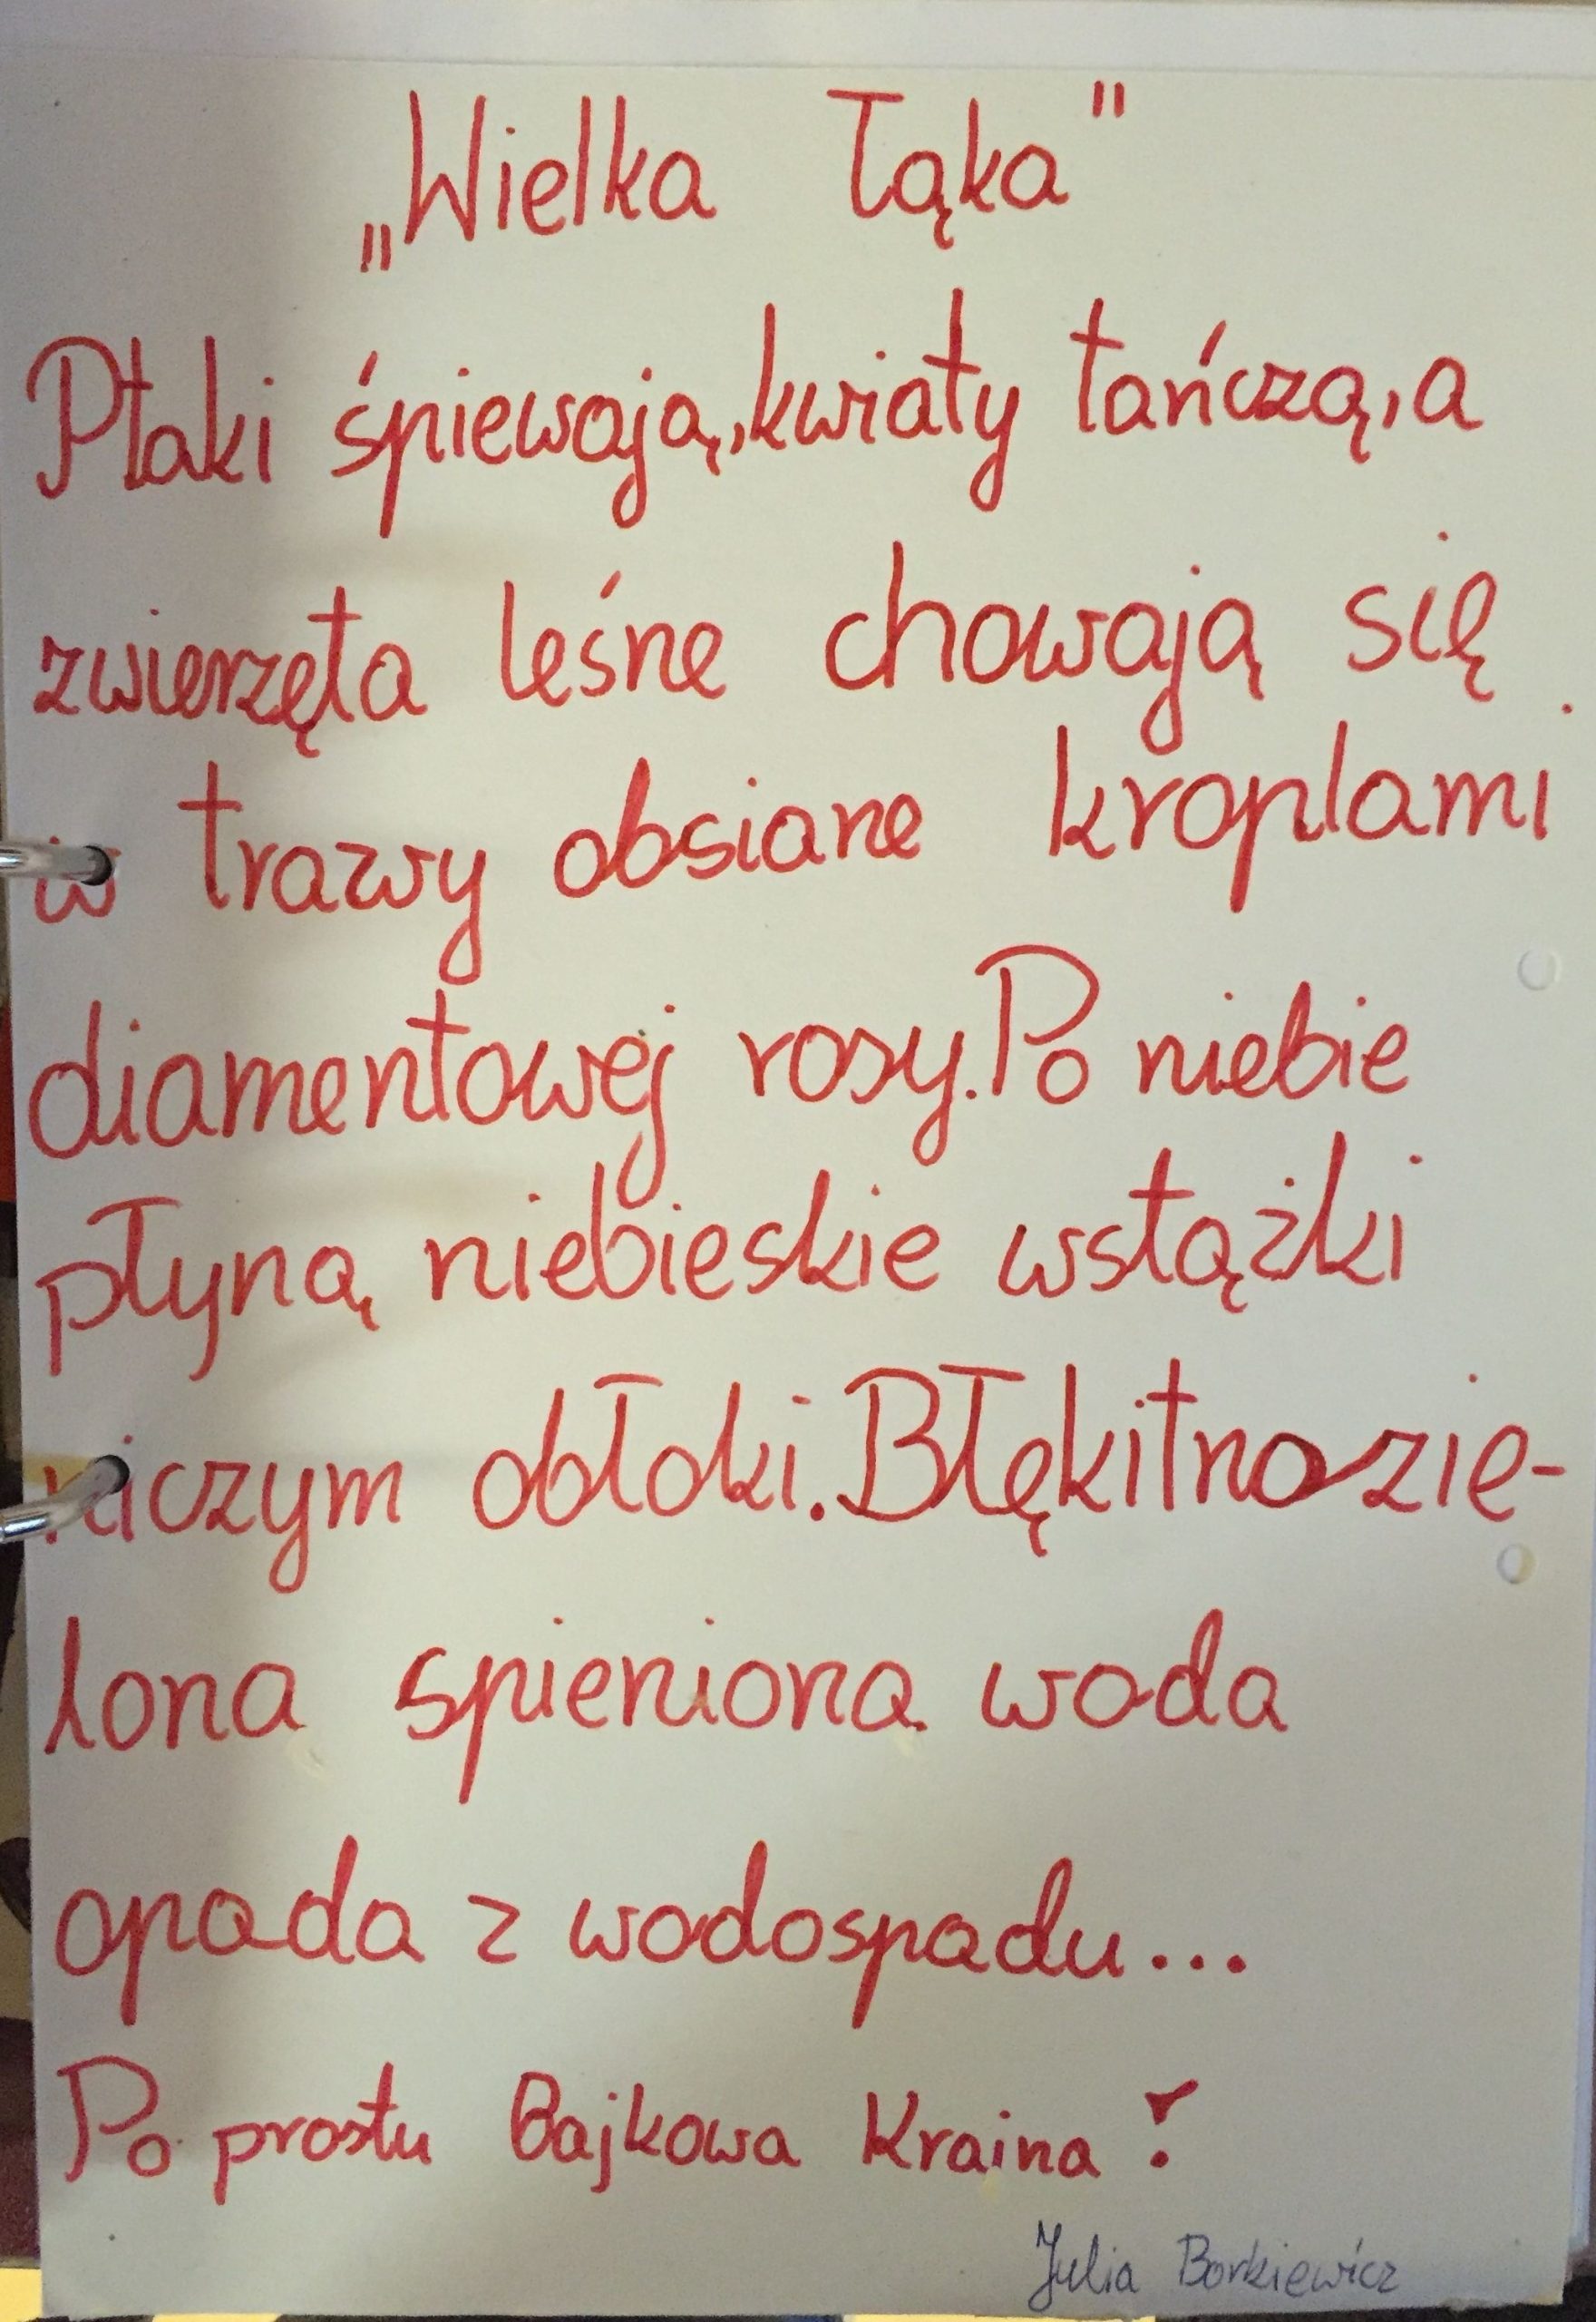 „Wielka Łąka"
Ptaki śpiewają, kwiaty tańczą, a
zwierzęta leśne chowają się
w trawy obsiane kroplami
diamentowej rosy. Po niebie
płyną niebieskie wstążki
niczym obłoki. Błękitnozie-
lona spieniona woda
opada z wodospadu...
Po prostu Bajkowa Kraina!
Julia Borkiewicz